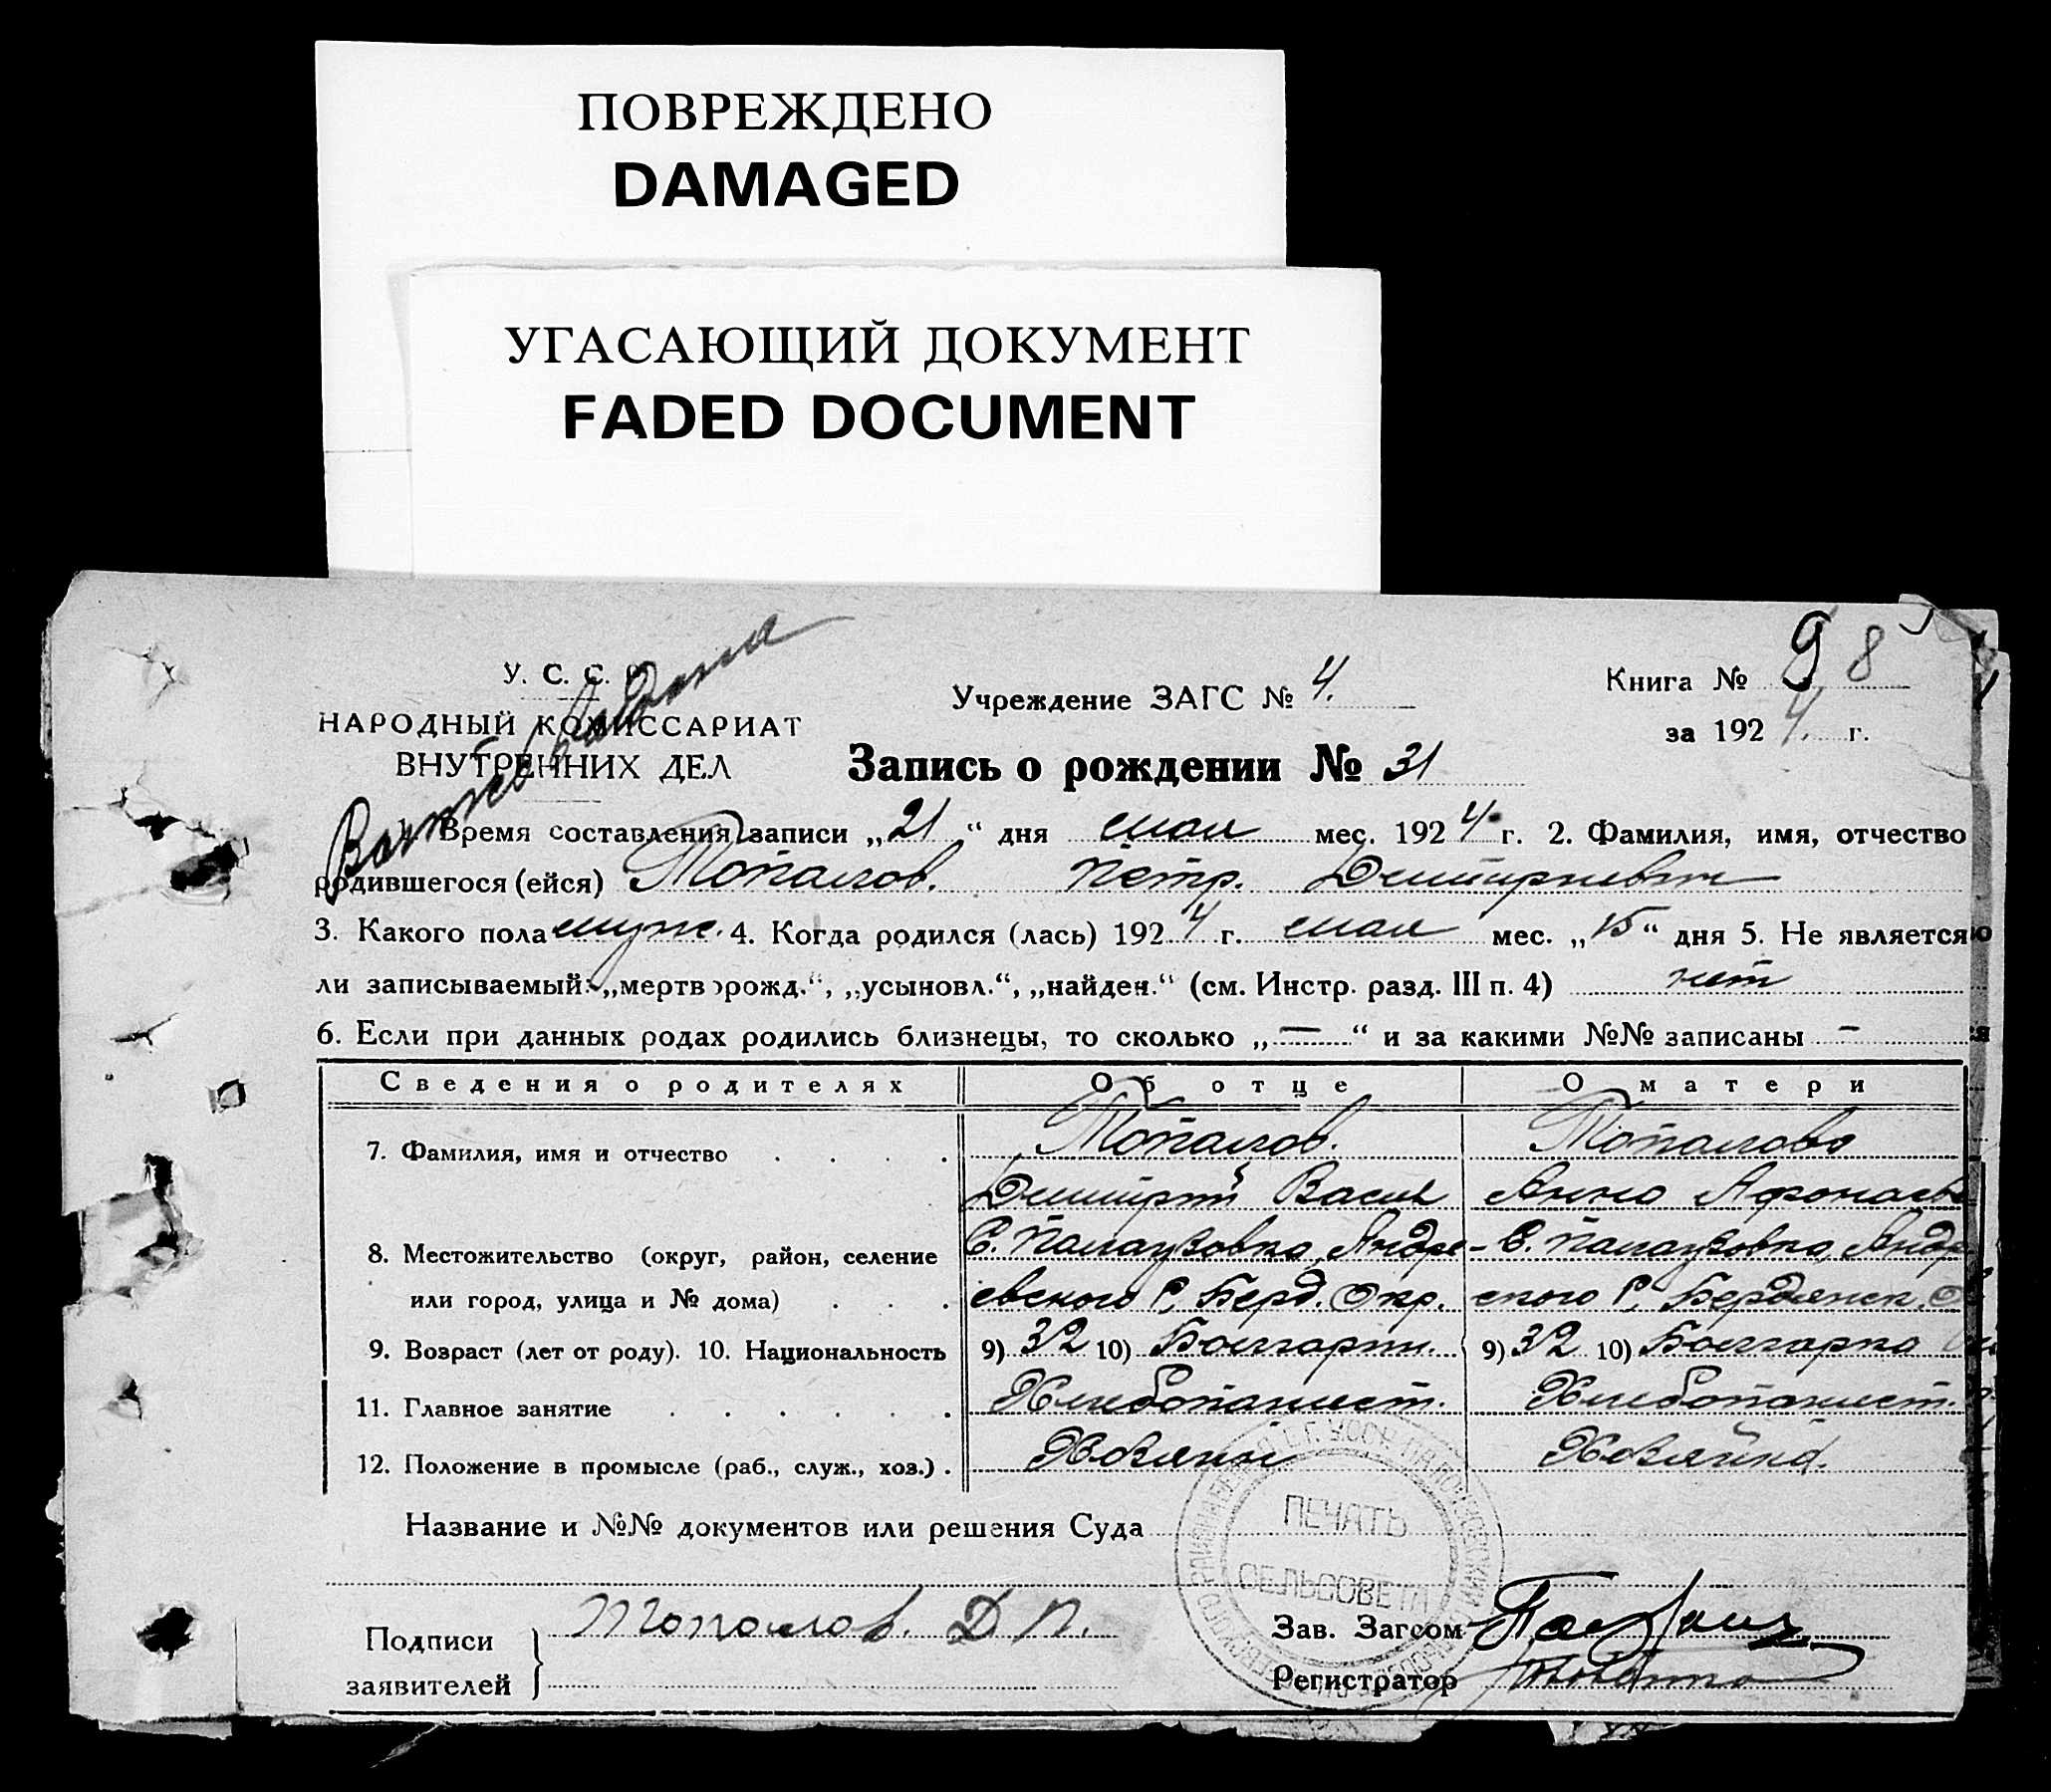 ПОВРЕЖДЕНО
DAMAGED
УГАСАЮЩИЙ ДОКУМЕНТ
FADED DOCUMENT
У. С. С. Р.
НАРОДНЫЙ КОМИССАРИАТ
ВНУТРЕННИХ ДЕЛ
Учреждение ЗАГС № 4.
Книга № 9 8
за 1924. г.
Запись о рождении № 31
Время составления записи „21“ дня мая мес. 1924 г. 2. Фамилия, имя, отчество
родившегося (ейся) Топалов. Петр. Дмитриевич
3. Какого пола муж. 4. Когда родился (лась) 1924 г. мая мес. „15“ дня 5. Не является
ли записываемый: „мертворожд.“, „усыновл.“, „найден.“ (см. Инстр. разд. III п. 4) нет
6. Если при данных родах родились близнецы, то сколько „—“ и за какими №№ записаны —
Сведения о родителях Об отце О матери
7. Фамилия, имя и отчество Топалов. Топалова
Дмитрий Васил Анна Афонасьев
8. Местожительство (округ, район, селение С. Палаузовка, Андре- С. Палаузовка, Андр
или город, улица и № дома) евского Р. Берд. Окр. ского Р. Бердянск. О
9. Возраст (лет от роду). 10. Национальность 9) 32 10) Болгарин. 9) 32 10) Болгарка
11. Главное занятие Хлебопашест. Хлебопашест.
12. Положение в промысле (раб., служ., хоз.) Хозяин Хозяйка.
Название и №№ документов или решения Суда
ПЕЧАТЬ
СЕЛЬСОВЕТА
Подписи
заявителей
Топалов. Д П.
Зав. Загсом
Регистратор